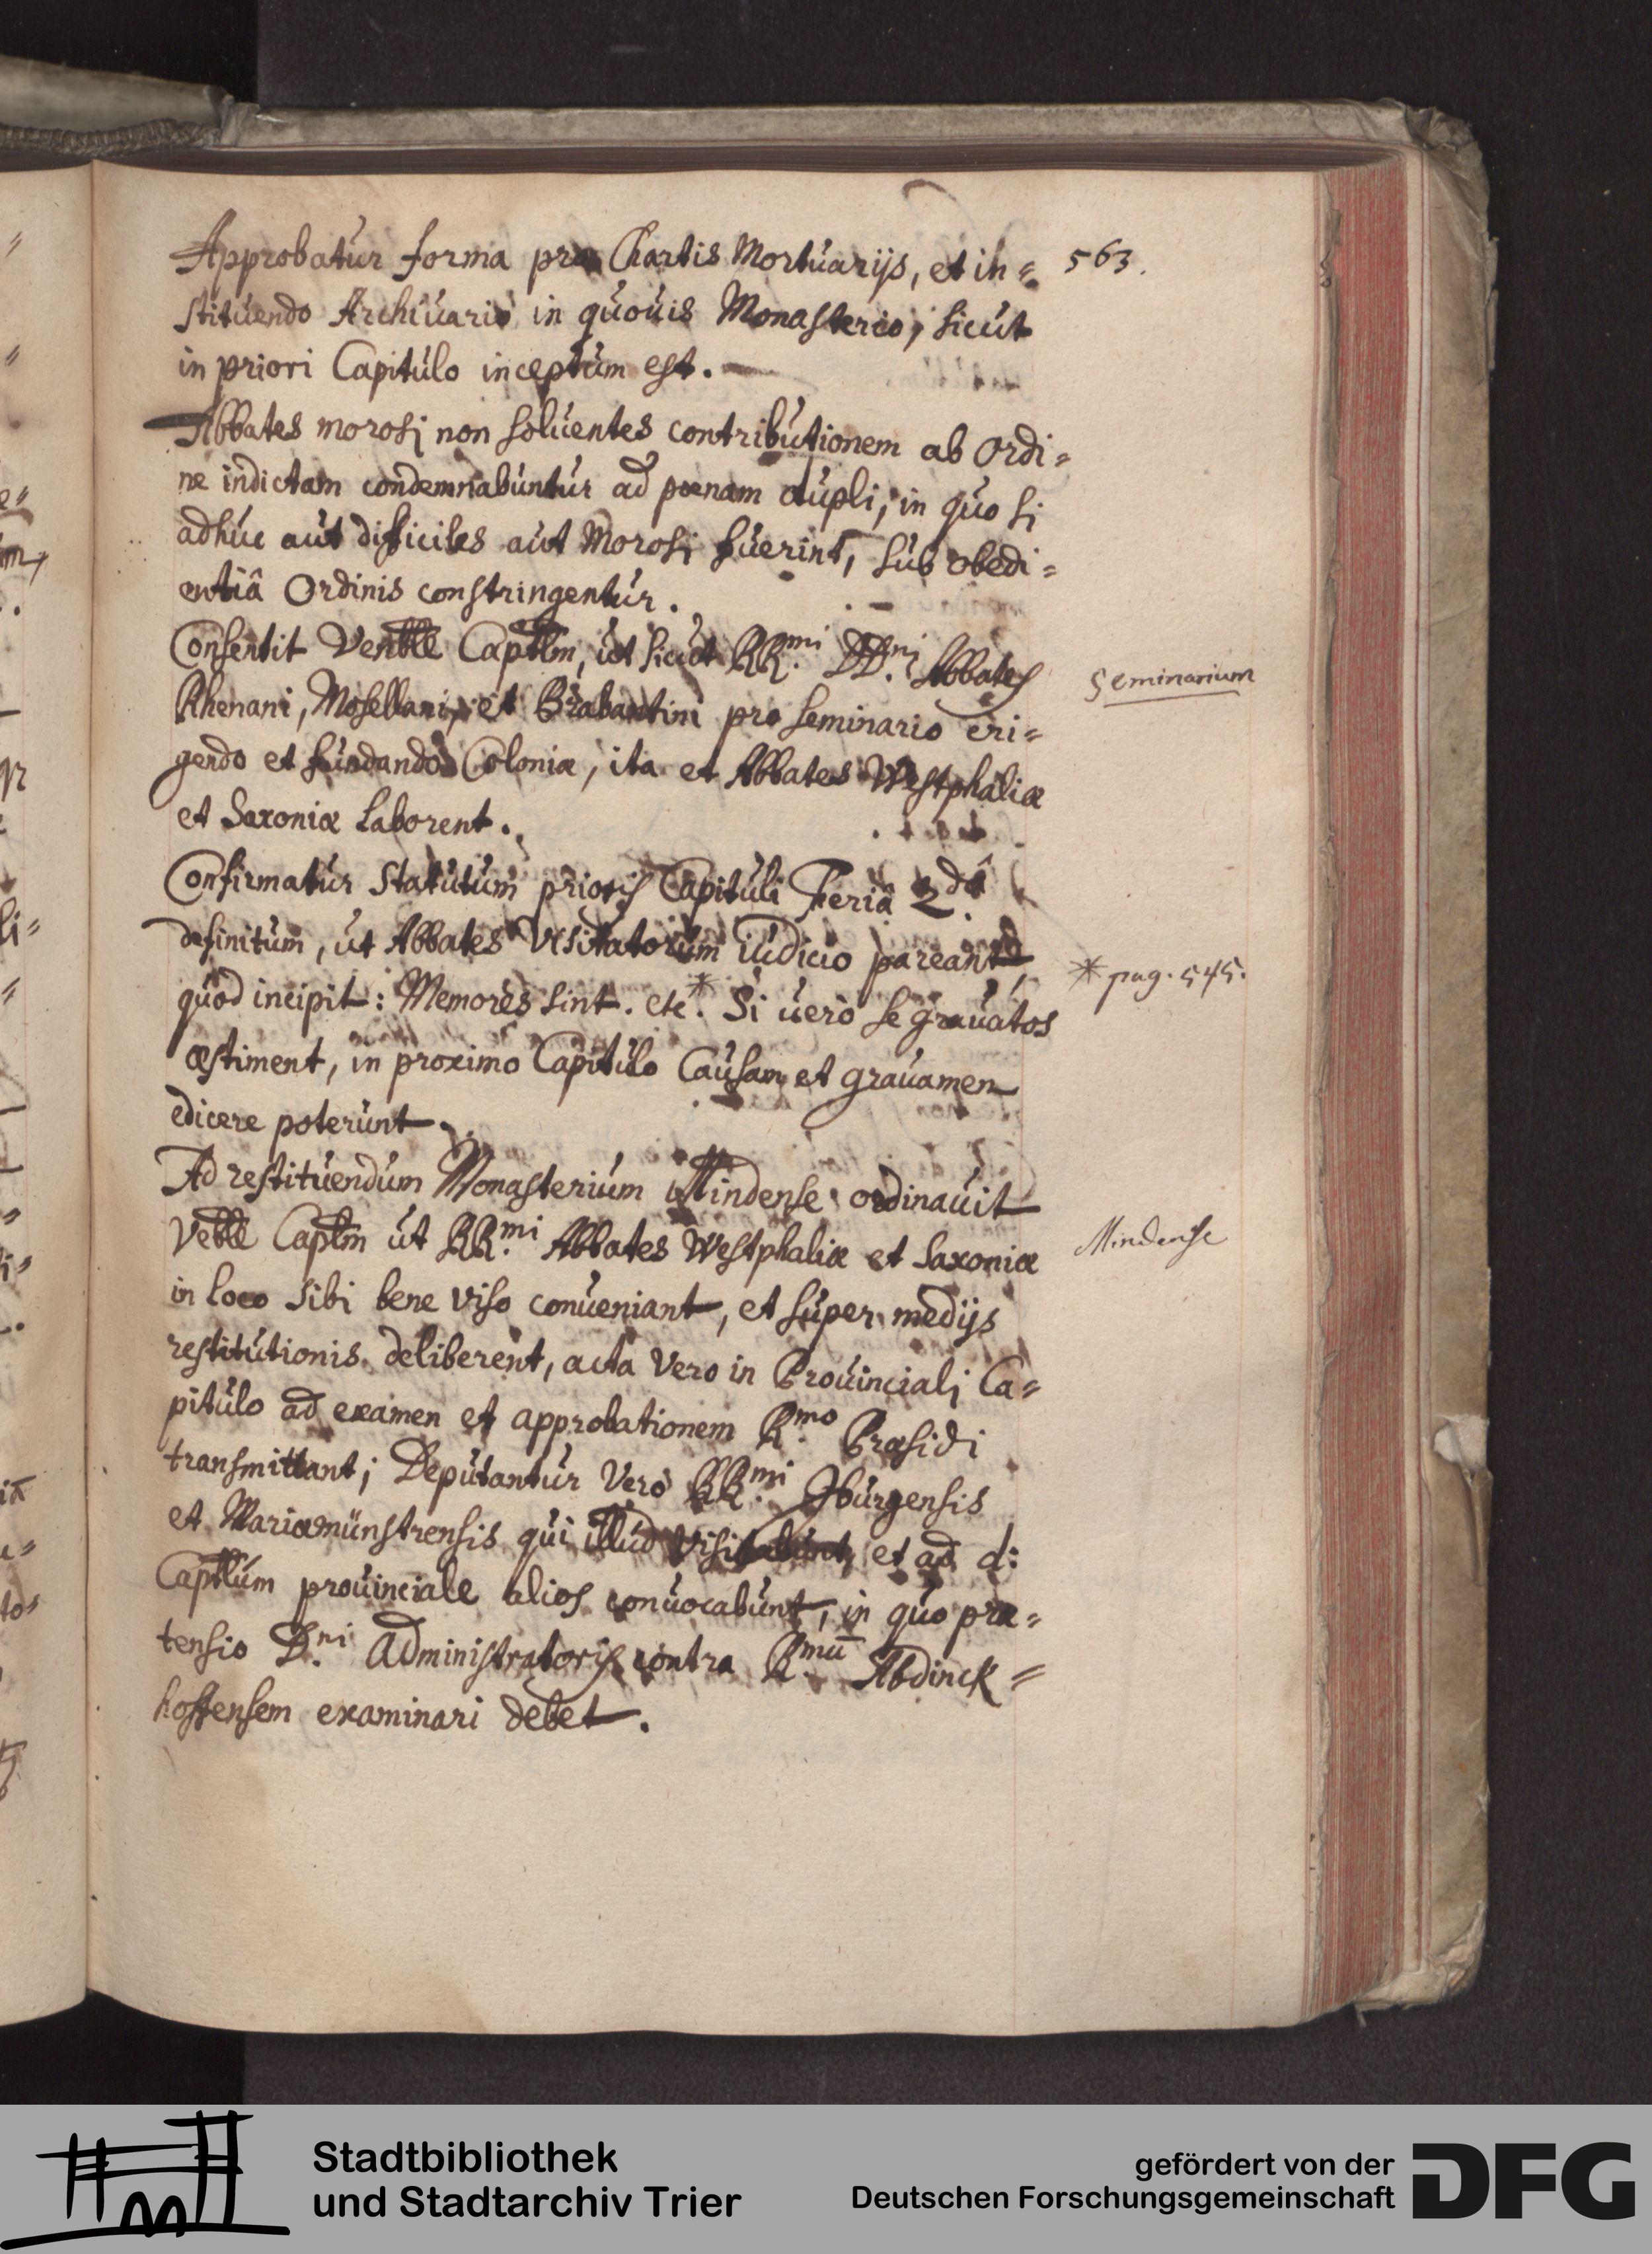 563.
Approbatur forma pro Chartis Mortuarijs, et in=
stituendo Archiuario in quouis Monasterio, sicut
in priori Capitulo inceptum est.
Abbates morosi non soluentes contributionem ab Ordi=
ne indictam condemnabuntur ad poenam dupli, in quo si
adhuc aut difficiles aut Morosi fuerint, sub obedi=
entiâ Ordinis constringentur.
Consentit Venble Captlm, ut sicut RR.mi DD.ni Abbates
Seminarium
Rhenani, Mosellani, et Brabantini pro Seminario eri=
gendo et fundando Coloniæ, ita et Abbates Westphaliæ
et Saxoniæ laborent.
Confirmatur Statutum prioris Capituli Feriâ 2.dâ
definitum, ut Abbates Visitatorum iudicio pareant,
* pag. 545.
quod incipit: Memores sint. etc.* Si uerò se grauatos
æstiment, in proximo Capitulo Causam et grauamen
edicere poterunt.
Ad restituendum Monasterium Mindense ordinauit
Veble Captlm ut RR.mi Abbates Westphaliæ et Saxoniæ
Mindense
in loco sibi bene viso conueniant, et super medijs
restitutionis deliberent, acta Vero in Prouinciali Ca=
pitulo ad examen et approbationem R.mo Præsidi
transmittant; Deputantur Verò RR.mi Iburgensis
et Mariæmünstrensis qui illud visitabunt, et ad d:
Captlum prouinciale alios conuocabunt, in quo præ=
tensio D.ni Administratoris contra R.mū Abdinck=
hoffensem examinari debet.
Stadtbibliothek
und Stadtarchiv Trier
gefördert von der
Deutschen Forschungsgemeinschaft
DFG